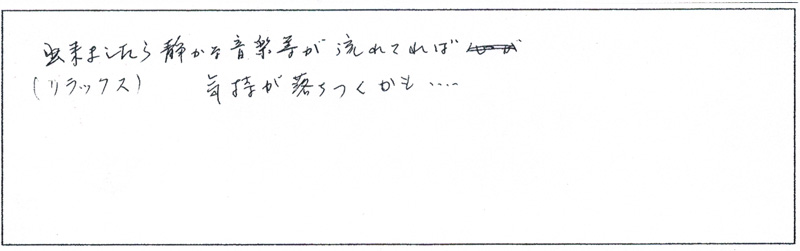 出来ましたら静かな音楽等が流れてれば
(リラックス) 気持が落ちつくかも….